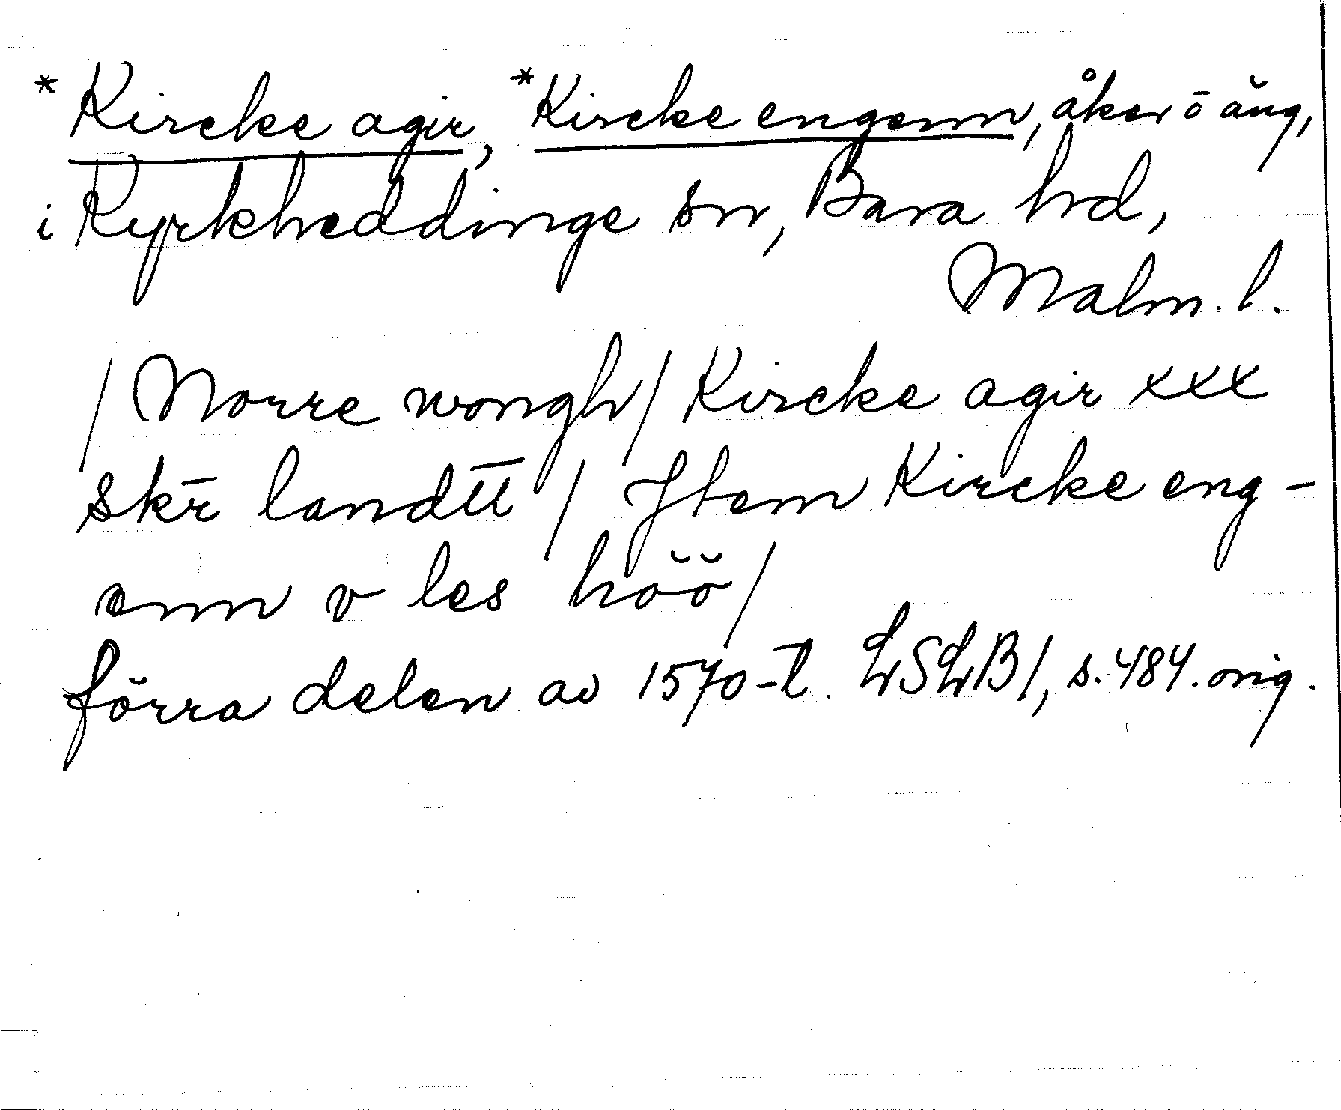 *Kircke agir, *Kircke engenn, åker ō äng,
i Kyrkheddinge sn, Bara hd,
Malm. l.
/ Norre wongh / Kircke agir xxx
skr̄ landtt̄ / Jtem Kircke eng-
enn v les höö /
förra delen av 1570-t̄. LSLB1, s. 484. orig.